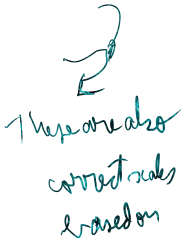 These are also
correct scales
based on